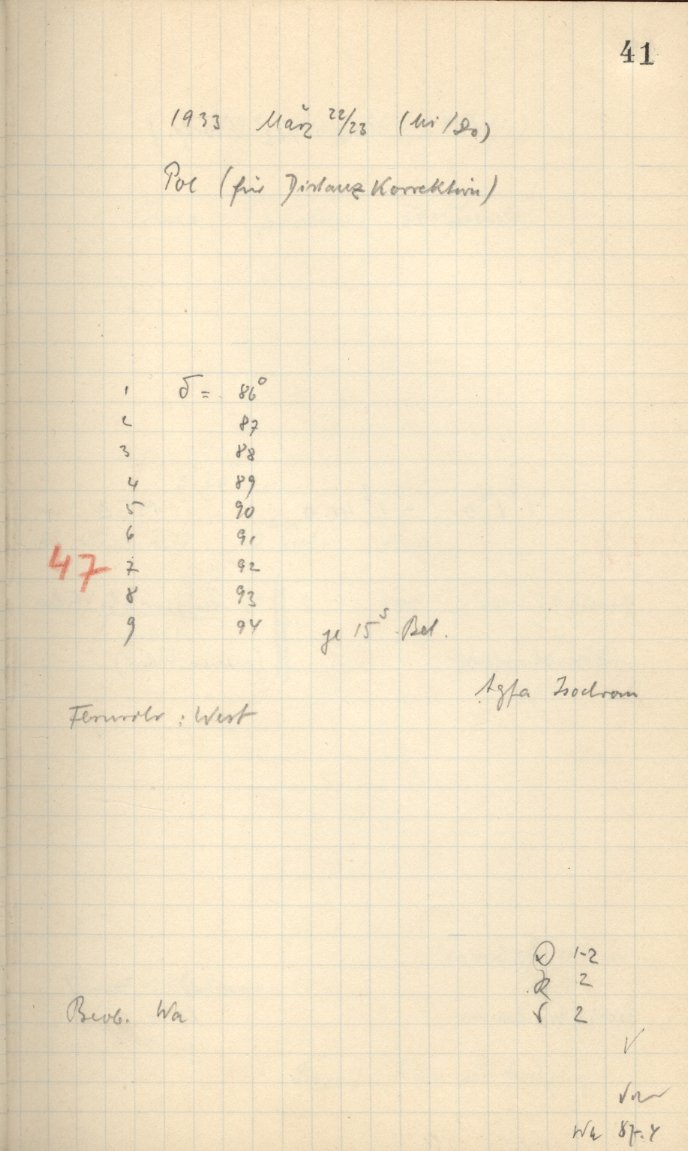 41
1933 März 22/23 (Mi/Do)
Pol (für Distanz Korrektion)
1 δ = 86°
2 87
3 88
4 89
5 90
6 91
47 7 92
8 93
9 94 je 15ˢ Bel.
Agfa Isochrom
Fernrohr : West
1-2
2
Beob. Wa 2
Wa